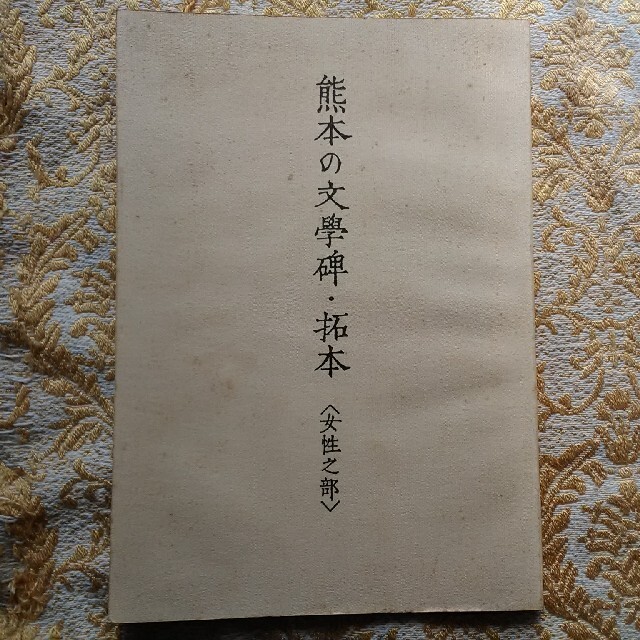 熊本の文學碑・拓本
〈女性之部〉